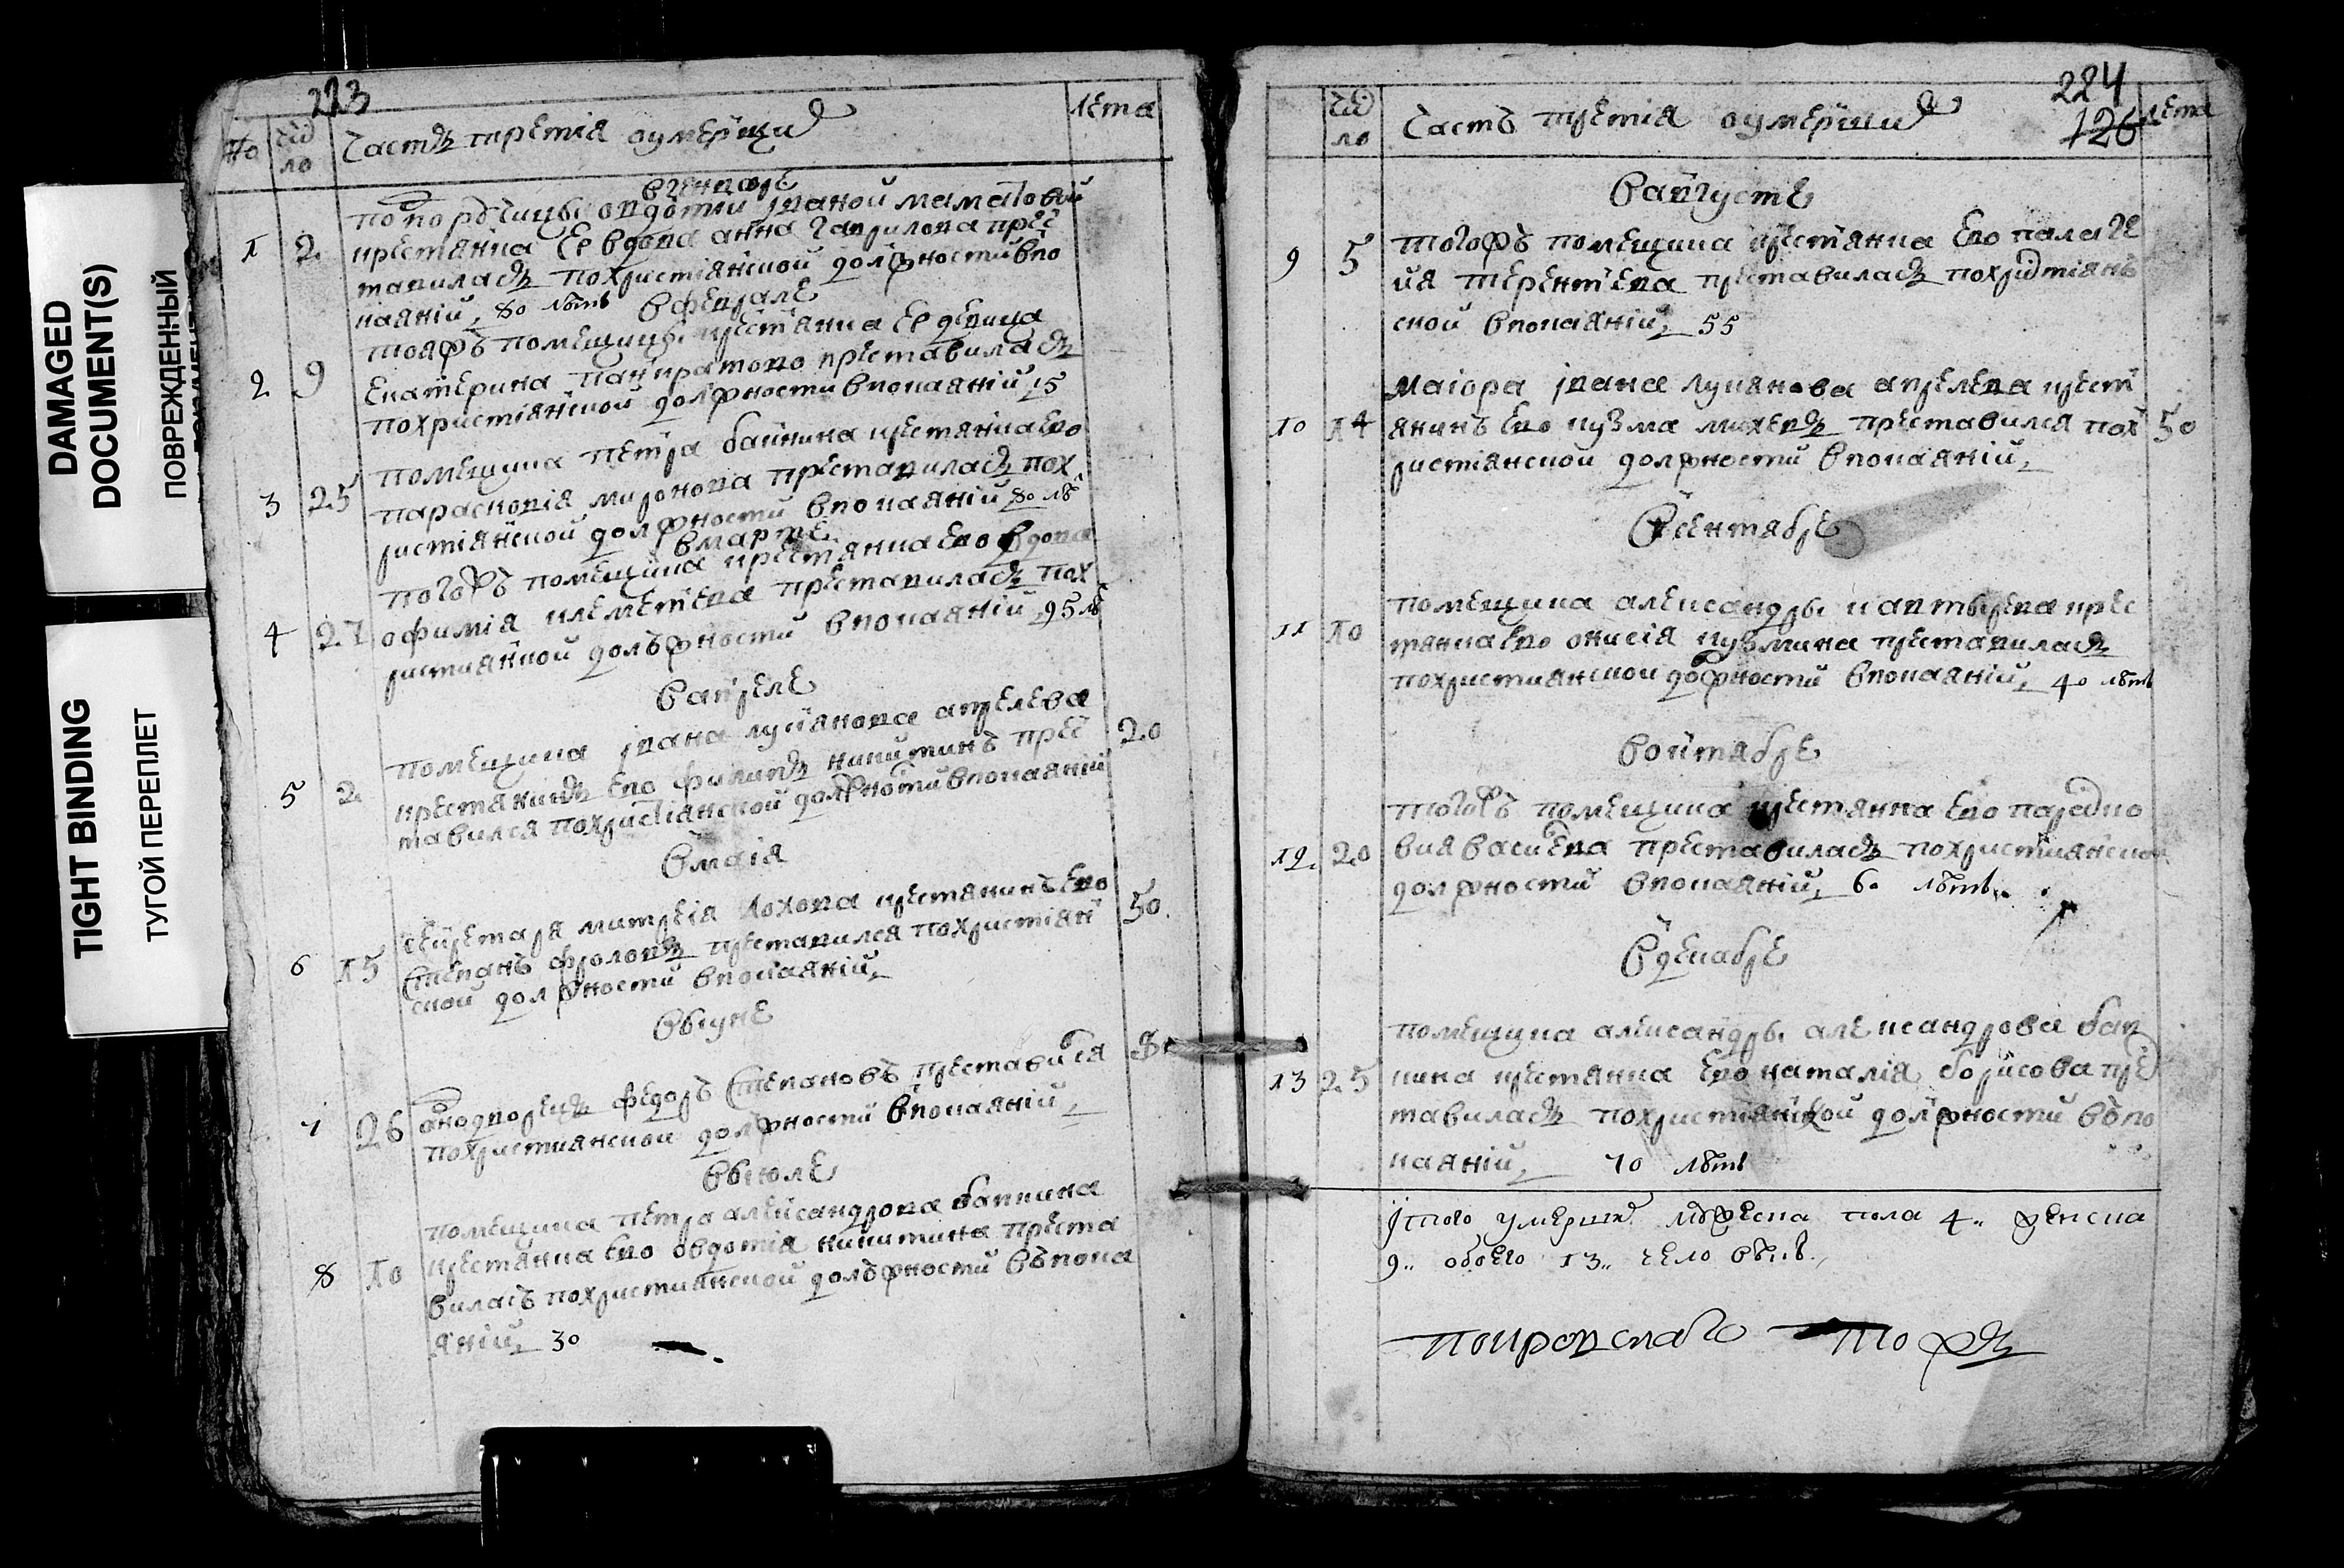 DAMAGED
DOCUMENT(S)
ПОВРЕЖДЕННЫЙ
TIGHT BINDING
ТУГОЙ ПЕРЕПЛЕТ
223
чис
ло
Часть третія оумерших
лета
вгенваре
1 2 овдотии іваной маматовой
крестянка ее вдова анна гаврилова прес
тавилась похристіянской должности впо
каяній, 80 летъ вфеврале
тояжъ помещицы крестянка ее девица
2 9 екатерина панкратово преставилась
похристіянской должности впокаяній, 15
помещика петра баикина крестянка ево
3 25 парасковія миронова преставилась пох
ристіянской должности впокаяній 80 ле
вмарте
тогожъ помещика крестянка ево вдова
4 27 офимія клеметева преставилась пох
ристиянкой должности впокаяній 95 ле
вапреле
помещика івана лукянова апрелева
5 2 крестянинъ ево филипъ никитинъ прес 20
тавился похристіянской должности впокаяній
вмаія
секретаря митреія лохова крестянинъ ево
6 15 степанъ фроловъ преставился похристіян 50
ской должности впокаяній,
выуне
7 26 аноднодворецъ федоръ степановъ преставился
похристиянской должности впокаяній,
выюле
помещика петра александрова баикина
8 10 крестянка ево овдотія никитина преста
вилась похристиянской должности въпока
яній, 30
224
126
чис
ло
Часть третія оумерших
лета
вавгусте
9 5 тогожъ помещика крестянка ево палаге
ия терентева преставилась похристиянъ
ской впокаяній, 55
маіора івана лукянова апрелева крест
10 14 янинъ ево кузма михевъ преставился пох 50
ристіянской должности впокаяній,
всентябре
помещика александры крес
11 10 тянка ево онисія кузмина преставилась
похристиянской должности впокаяній, 40 летъ
воктябре
тогожъ помещика крестянка ево параско
12 20 вия василева преставилась похристиянской
должности впокаяній, 60 летъ
вдекабре
помещика александры александрова баи
13 25 кина крестянка ево наталія борисова прес
тавилась похристиянской должности въпо
каяній, 70 летъ
Ітого умерших мужеска пола 4 женска
9 обоего 13 человекъ
покровскаго тожъ